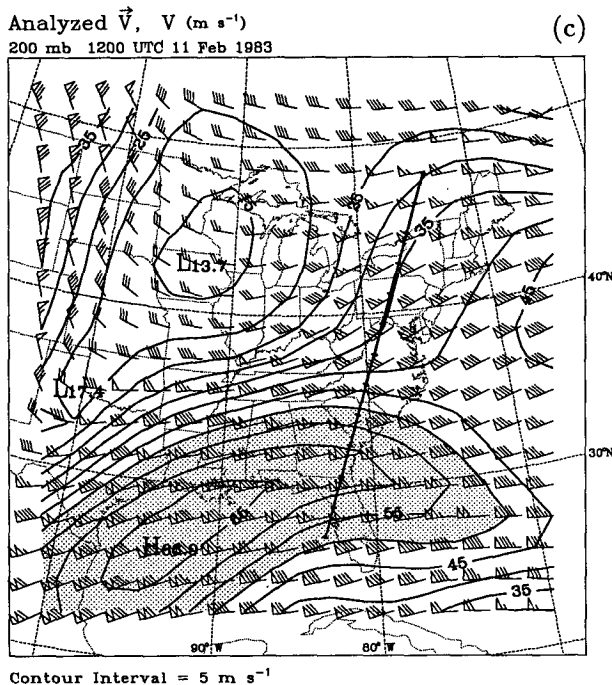 Analyzed V⃗, V (m s⁻¹)
(c)
200 mb 1200 UTC 11 Feb 1983
35
25
35
35
L13.7
40°N
45
L17.4
30°N
65
55
45
35
90°W
80°W
Contour Interval = 5 m s⁻¹